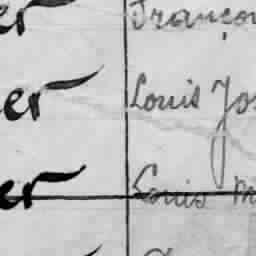 er Françoi
er Louis Jos
er Louis M